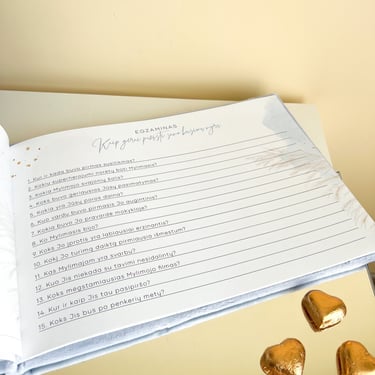 EGZAMINAS
Kaip gerai pažįsti savo būsimą vyrą
1. Kur ir kada buvo pirmas susitikimas?
2. Kokiu superherojumi norėtų būti Mylimasis?
3. Kokia Mylimojo svajonių šalis?
4. Koks buvo geriausias Jūsų pasimatymas?
5. Kokia yra Jūsų poros daina?
6. Kuo vardu buvo pirmasis Jo augintinis?
7. Kokia buvo Jo pravardė mokykloje?
8. Ko Mylimasis bijo?
9. Koks Jo įprotis yra labiausiai erzinantis?
10. Kokį Jo turimą daiktą pirmiausia išmestum?
11. Kas Mylimajam yra svarbu?
12. Kuo Jis niekada su tavimi nesidalintų?
13. Koks mėgstamiausias Mylimojo filmas?
14. Kur ir kaip Jis tau pasipiršo?
15. Koks Jis bus po penkerių metų?